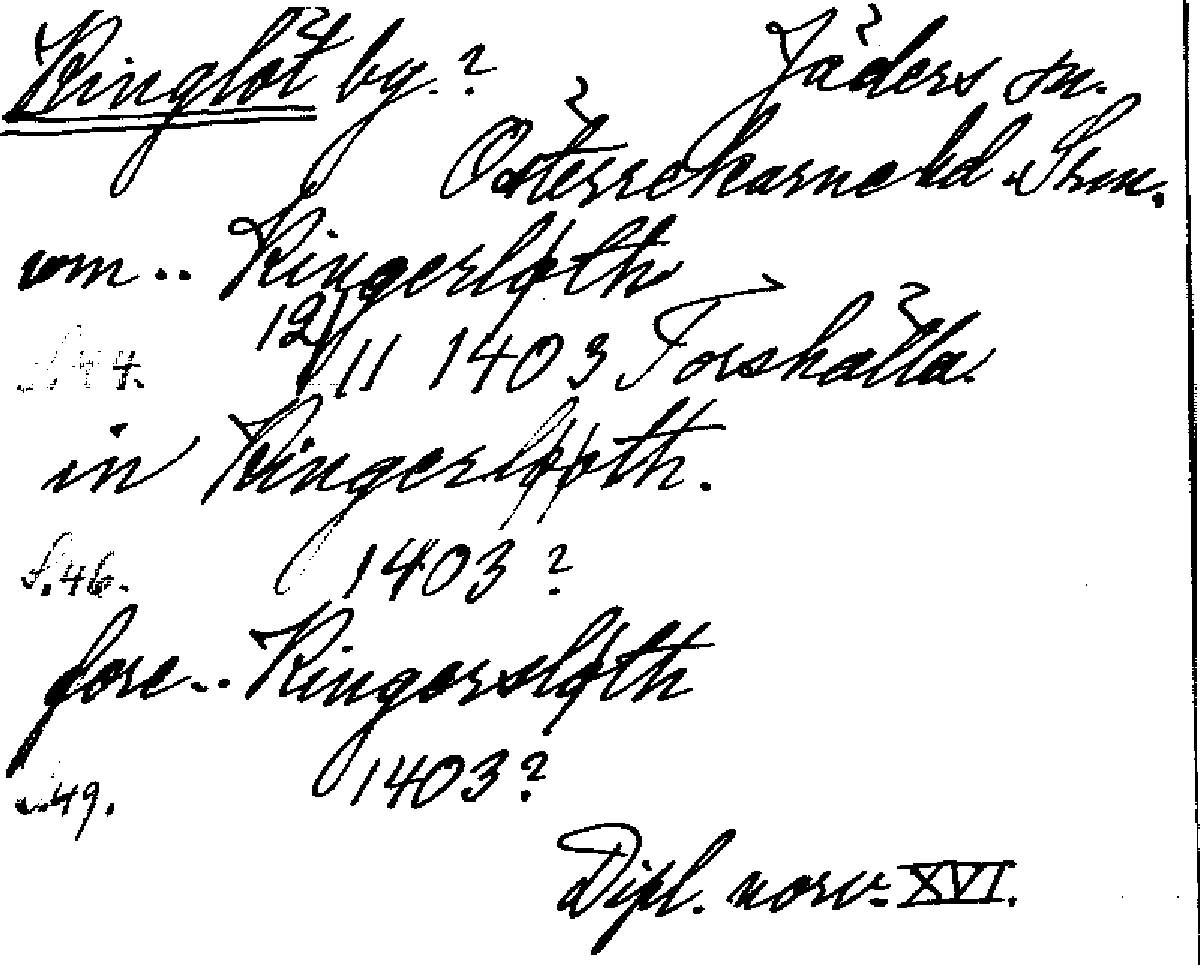 Ringlöt by.? Jäders sn.
Österrekarne hd. Srm.
um.. Ringerløth
S.44. 12/11 1403 Forshälla.
in Ringerløøth.
S.46. 1403?
fore.. Ringorsløth
S.49. 1403?
Dipl. norv. XVI.